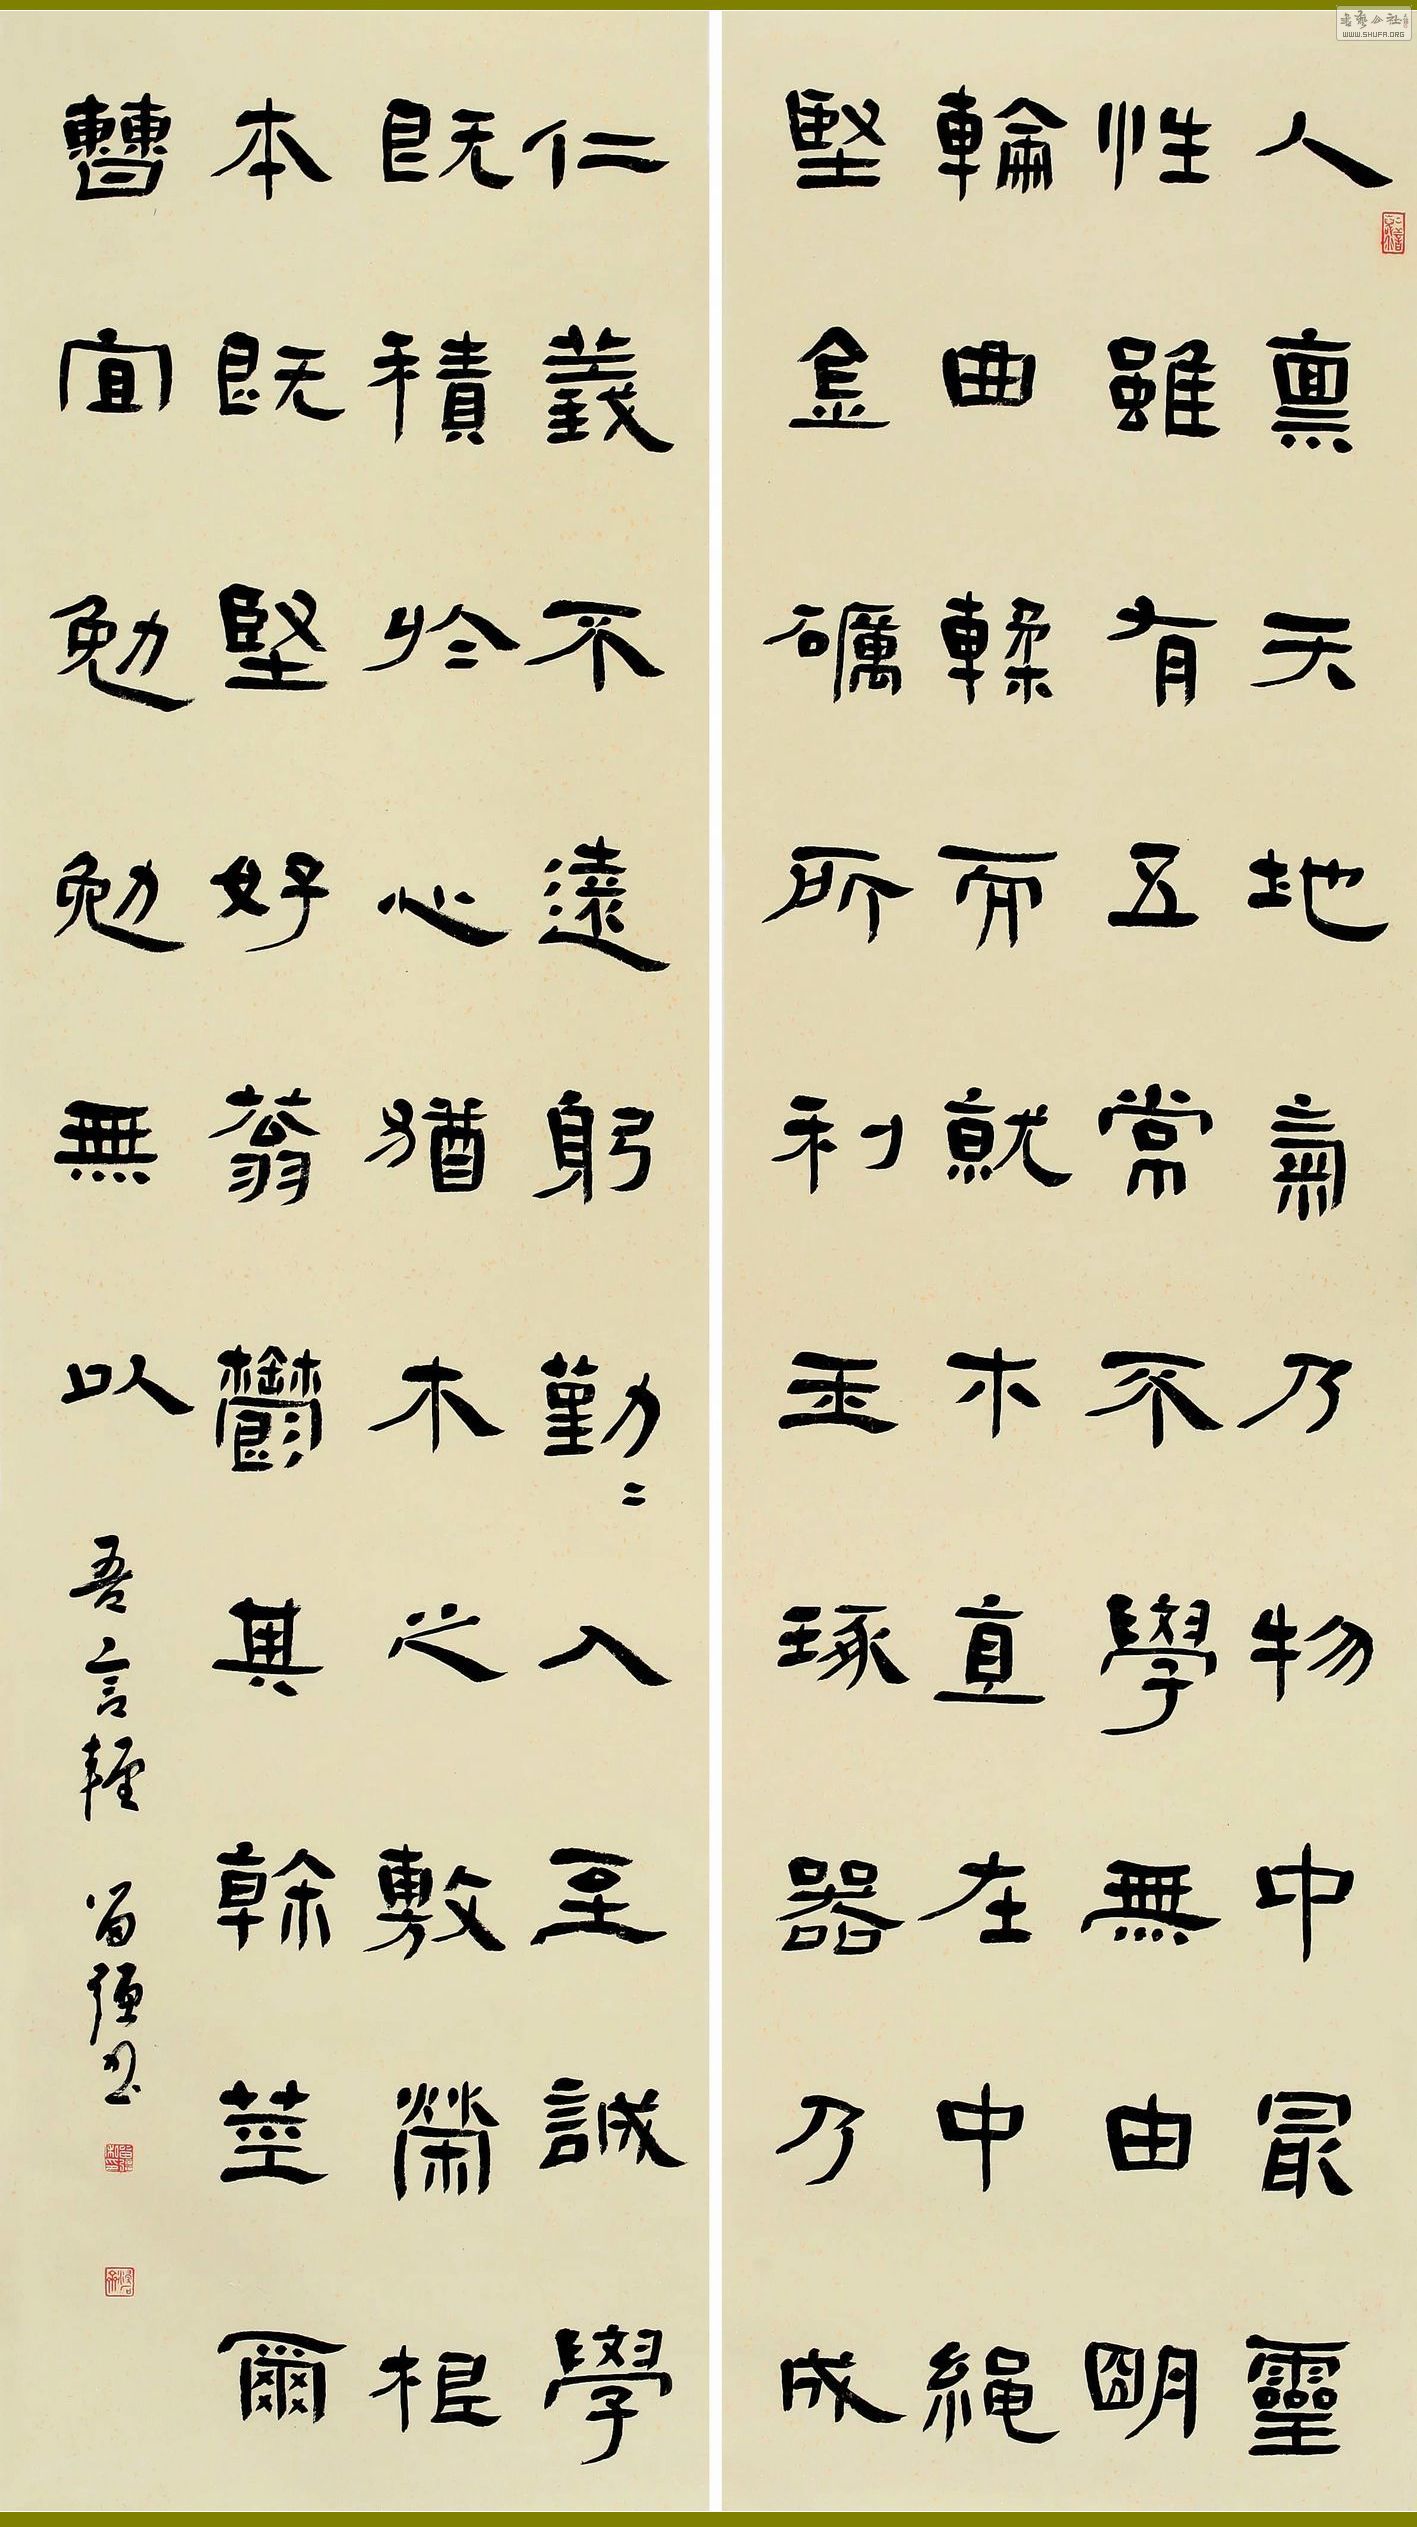 人禀天地氣乃物中冣靈
性雖有五常不學無由明
輪曲輮而就木直在中繩
堅金礪所利玉琢器乃成
仁義不遠躬勤〻入至誠學
既積於心猶木之敷榮根
本既堅好蓊鬱其榦莖爾
曹宜勉勉無以吾言輕
WWW.SHUFA.ORG